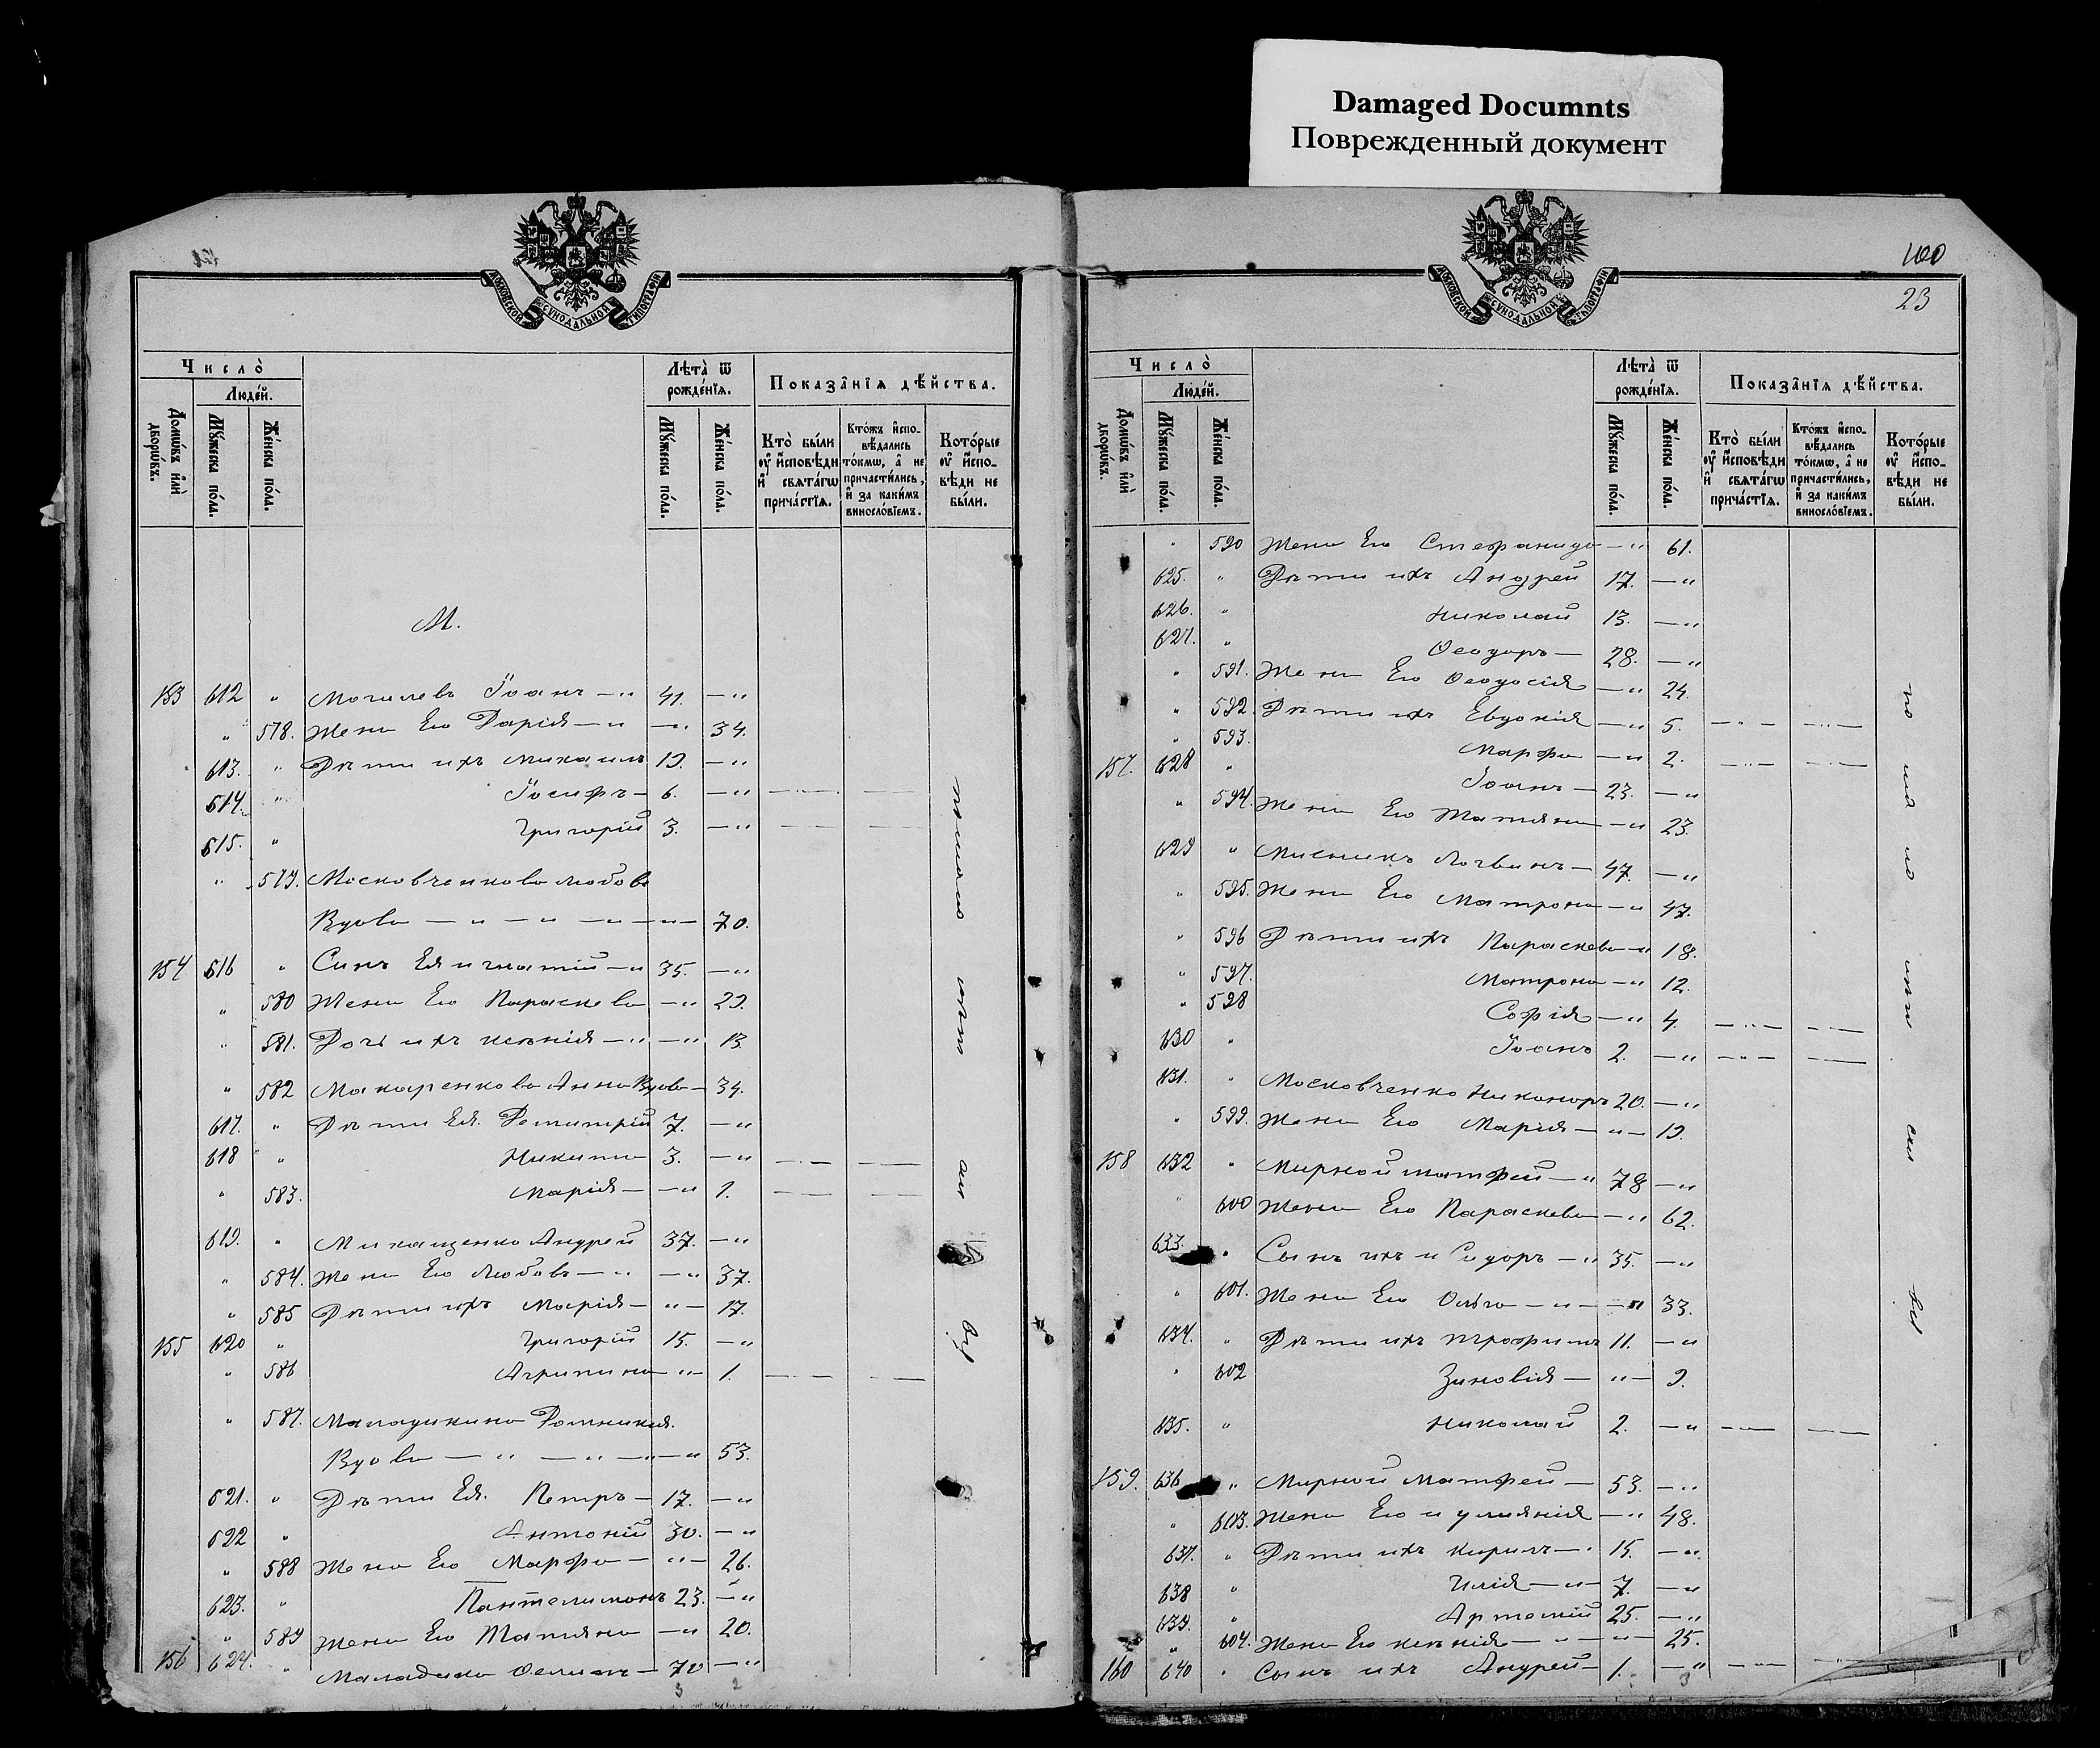 Damaged Documnts
Поврежденный документ
МОСКОВСКОЙ СУНОДАЛЬНОЙ ТИПОГРАФІИ
Число̀
Люде́й.
Домѡ́въ и҆лѝ дворѡ́въ.
Мꙋ́жеска по́ла.
Же́нска по́ла.
Лѣ́та ѿ рожде́нїѧ.
Мꙋ́жеска по́ла.
Же́нска по́ла.
Показа̑нїѧ дѣ́йства.
Кто̀ бы́ли оу҆ и҆сповѣ́ди и҆ свѧта́гѡ прича́стїѧ.
Кто́жъ и҆спо-вѣ́дались то́кмѡ, а҆ не причасти́лись, и҆ за каки́мъ винослѡ́вїемъ.
Кото́рые оу҆ и҆спо-вѣ́ди не бы́ли.
М.
153 612 " Могилевъ Іоанъ — " 41. — "
" 578. Жена Его Дарія — " — " 34.
613. " Дѣти ихъ Михаилъ 19. — "
614. " Іосифъ — 6. — "
615. " Григорій 3. — "
" 579. Московченкова Любовь
Вдова — " — " — " — " — 70.
154 616 " Синъ Ея игнатій — " 35. — "
" 580 Жена Его Параскева — " 29.
" 581. Дочь ихъ ксенія — " — " 13.
" 582 Макаренкова Анна Вдова — 34.
617. " Дѣти Ея. Димитрій 7. — "
618 " Никита 3. — "
" 583. Марія — — " 1.
619. " Михащенко Андрей 37. — "
" 584. Жена Его Любовь — " — " 37.
" 585 Дѣти ихъ Марія — " — 17.
155 620 " Григорій 15. — "
" 586 Агрипина — " — 1.
" 587. Маладикина Домникия.
Вдова — " — " — " — " 53.
621. " Дѣти Ея. Петръ — 17. — "
622 " Антоній 30. — "
" 588 Жена Его Марфа — " — 26.
623. " Пантелимонъ 23. — "
" 589 Жена Его Татіяна — " 20.
156 624. " Маладика — 70 — "
3 2
100
23
Число̀
Люде́й.
Домѡ́въ и҆лѝ дворѡ́въ.
Мꙋ́жеска по́ла.
Же́нска по́ла.
Лѣ́та ѿ рожде́нїѧ.
Мꙋ́жеска по́ла.
Же́нска по́ла.
Показа̑нїѧ дѣ́йства.
Кто̀ бы́ли оу҆ и҆сповѣ́ди и҆ свѧта́гѡ прича́стїѧ.
Кто́жъ и҆спо-вѣ́дались то́кмѡ, а҆ не причасти́лись, и҆ за каки́мъ винослѡ́вїемъ.
Кото́рые оу҆ и҆спо-вѣ́ди не бы́ли.
" 590 Жена Его Стефанида — " 61.
625. " Дѣти ихъ Андрей 17. — "
626. " Николай 13. — "
627. " Ѳеодоръ — 28. — "
" 591. Жена Его Ѳеодосія — " 24.
" 592. Дѣти ихъ Евдокія — " 5.
" 593. Марфа — " 2.
157. 628 " Іоанъ — 23. — "
" 594. Жена Его Татіяна — " 23.
629 " Мисникъ Логвинъ — 47. — "
" 595. Жена Его Матрона — " 47.
" 596 Дѣти ихъ Параскева — " 18.
" 597. Матрона — " 12.
" 598 Софія — " 4.
630 " Іоанъ 2. — "
631. " Московченко Никаноръ 20. — "
" 599. Жена Его Марія — " — 19.
158 632 " Мирной матфей — " 78 — "
" 600 Жена Его Параскева — " 62.
633. " Сынъ ихъ и Сидоръ — " 35. — "
" 601. Жена Его Ольга — " — " 33.
634. " Дѣти ихъ Трофимъ 11. — "
" 602 Зиновія — " — 9.
635. " Николай 2. — "
159. 636 " Мирной Матфей — 53. — "
" 603. Жена Его иулияния — " 48.
637. " Дѣти ихъ Кирилъ — " 15. — "
638 " Илія — " — 7. — "
639. " Артемій 25. — "
" 604. Жена Его ксенія — " — " — 25.
160 640 " Сынъ ихъ Андрей — 1. — "
3